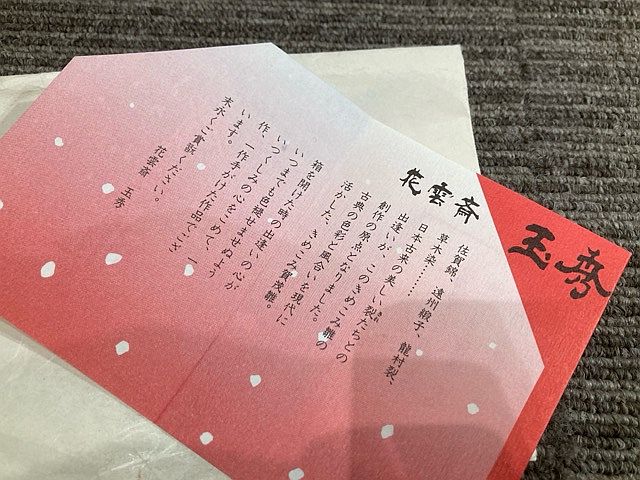 玉秀
花雲斎
佐賀錦、遠州緞子、龍村裂、
草木染……
日本古来の美しい裂たちとの
出逢いが、このきめこみ雛の
創作の原点となりました。
古典の色彩と風合いを現代に
活かした、きめこみ賀茂雛。
箱を開けた時の出逢いの心が
いつまでも色褪せませぬよう
いつくしみの心をこめて、一
作、一作手がけた作品でござ
います。
末永くご賞翫ください。
花雲斎 玉秀